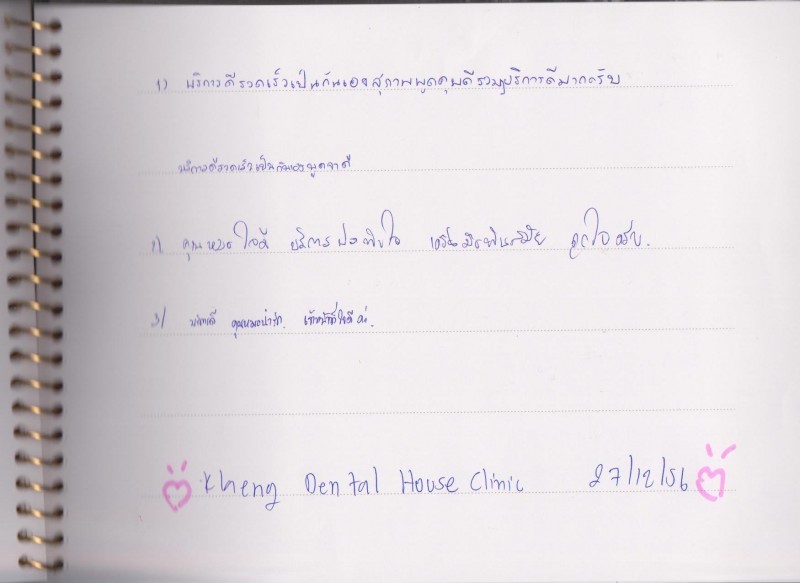 1) บริการดีรวดเร็วเป็นกันเองสุภาพพูดคุยดีรวมๆบริการดีมากครับ
บริการดีรวดเร็วเป็นกันเองพูดจาดี
คุณหมอใจดี บริการประทับใจ ถูกใจครับ.
3/ บริการดี คุณหมอน่ารัก. เจ้าหน้าที่ใจดีค่ะ.
Kheng Dental House Clinic 27/12/56